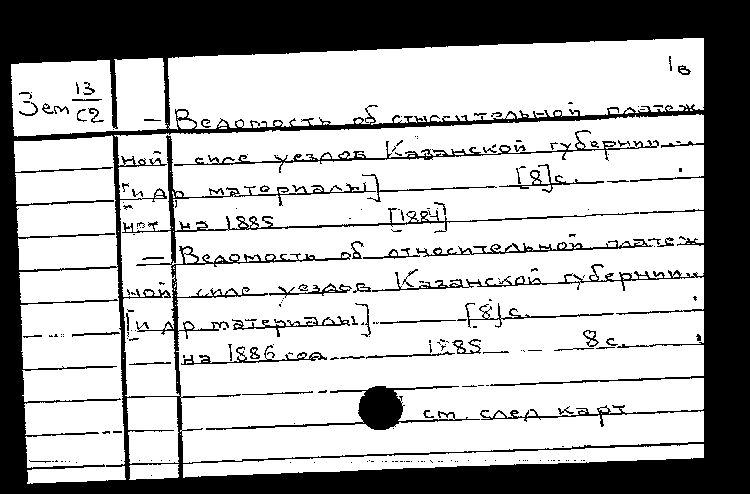 1в
Зем 13/С2
— Ведомость об относительной платеж
ной силе уездов Казанской губернии...
[и др материалы] [8]с.
на 1885 [1884]
— Ведомость об относительной платеж
ной силе уездов Казанской губернии...
[и др материалы] [8]с.
на 1886 год 1885 8с.
см. след карт